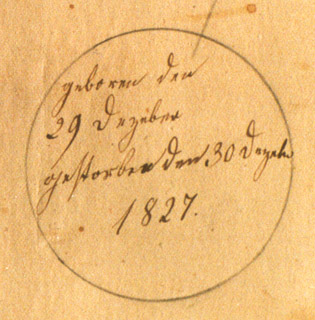 geboren den
29 Dezeber
gestorben den 30 Dezeb
1827.